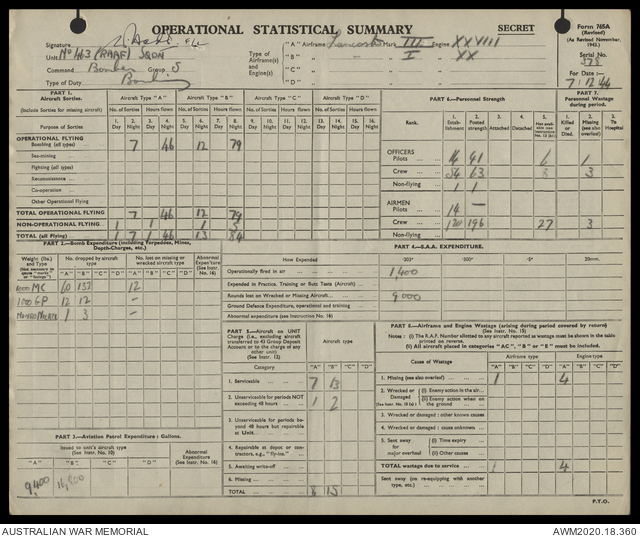 OPERATIONAL STATISTICAL SUMMARY
SECRET
Form 765A
(Revised)
(As Revised November, 1943.)
Signature F/L
Unit No 463 (RAAF) SQDN
Command Bomber Group 5
Type of Duty
Type of Airframe(s) and Engine(s)
"A" Airframe Lancaster Mark III Engine XXVIII
"B" " " I " XX
"C" " " "
"D" " " "
Serial No. 378
For Date :—
7 : 12 44
PART 1.
Aircraft Sorties.
(Include Sorties for missing aircraft)
Aircraft Type "A" Aircraft Type "B" Aircraft Type "C" Aircraft Type "D"
No. of Sorties Hours flown No. of Sorties Hours flown No. of Sorties Hours flown No. of Sorties Hours flown
Purpose of Sorties
1. Day 2. Night 3. Day 4. Night 5. Day 6. Night 7. Day 8. Night 9. Day 10. Night 11. Day 12. Night 13. Day 14. Night 15. Day 16. Night
OPERATIONAL FLYING
Bombing (all types) 7 46 12 79
Sea-mining
Fighting (all types)
Reconnaissance
Co-operation
Other Operational Flying
TOTAL OPERATIONAL FLYING 7 46 12 79
NON-OPERATIONAL FLYING 1 1 1 5
TOTAL (all Flying) 1 7 1 46 13 84
PART 6.—Personnel Strength
Rank.
1. Establishment 2. Posted strength 3. Attached 4. Detached
PART 7.
Personnel Wastage during period.
1. Killed or Died. 2. Missing (see also overleaf) 3. To Hospital
OFFICERS
Pilots 14 41 6 1
Crew 34 63 8 3
Non-flying 1 1
AIRMEN
Pilots 14 —
Crew 120 196 27 3
Non-flying
PART 2.—Bomb Expenditure (including Torpedoes, Mines, Depth-Charges, etc.)
Weight (lbs.) and Type
No. dropped by aircraft type
No. lost on missing or wrecked aircraft type
Abnormal Expenditure (See Instr. No. 16)
"A" "B" "C" "D" "A" "B" "C" "D"
1000 MC 60 137 12
1000 GP 12 12 —
1 3 —
PART 4.—S.A.A. EXPENDITURE.
How Expended ·303" ·300" ·5" 20mm.
Operationally fired in air 1,400
Expended in Practice, Training or Butt Tests (Aircraft)
Rounds lost on Wrecked or Missing Aircraft 9000
Ground Defence Expenditure, operational and training
Abnormal expenditure (see Instruction No. 16)
PART 5.—Aircraft on UNIT Charge (i.e., excluding aircraft transferred to 43 Group Deposit Account or to the charge of any other unit)
(See Instr. No. 12)
Aircraft type
Category "A" "B" "C" "D"
1. Serviceable 7 13
2. Unserviceable for periods NOT exceeding 48 hours 1 2
3. Unserviceable for periods beyond 48 hours but repairable at Unit
4. Repairable at depot or contractors, e.g., "fly-ins."
5. Awaiting write-off
6. Missing
TOTAL 8 15
PART 8.—Airframe and Engine Wastage (arising during period covered by return)
(See Instr. No. 15)
Notes : (i) The R.A.F. Number allotted to any aircraft reported as wastage must be shown in the table printed on reverse.
(ii) All aircraft placed in categories "AC", "B" or "E" must be included.
Cause of Wastage Airframe type Engine type
"A" "B" "C" "D" "A" "B" "C" "D"
1. Missing (see also overleaf) 1 4
2. Wrecked or Damaged (See Instr. No. 18 (a))
(i) Enemy action in the air
(ii) Enemy action when on the ground
3. Wrecked or damaged : other known causes
4. Wrecked or damaged : cause unknown
5. Sent away for major overhaul
(i) Time expiry
(ii) Other causes
TOTAL wastage due to service 1 4
Sent away (on re-equipping with another type, etc.)
PART 3.—Aviation Petrol Expenditure : Gallons.
Issued to unit's aircraft type
(See Instr. No. 10)
Abnormal Expenditure
(See Instr. No. 16)
"A" "B" "C" "D"
9,400
P.T.O.
AUSTRALIAN WAR MEMORIAL
AWM2020.18.360